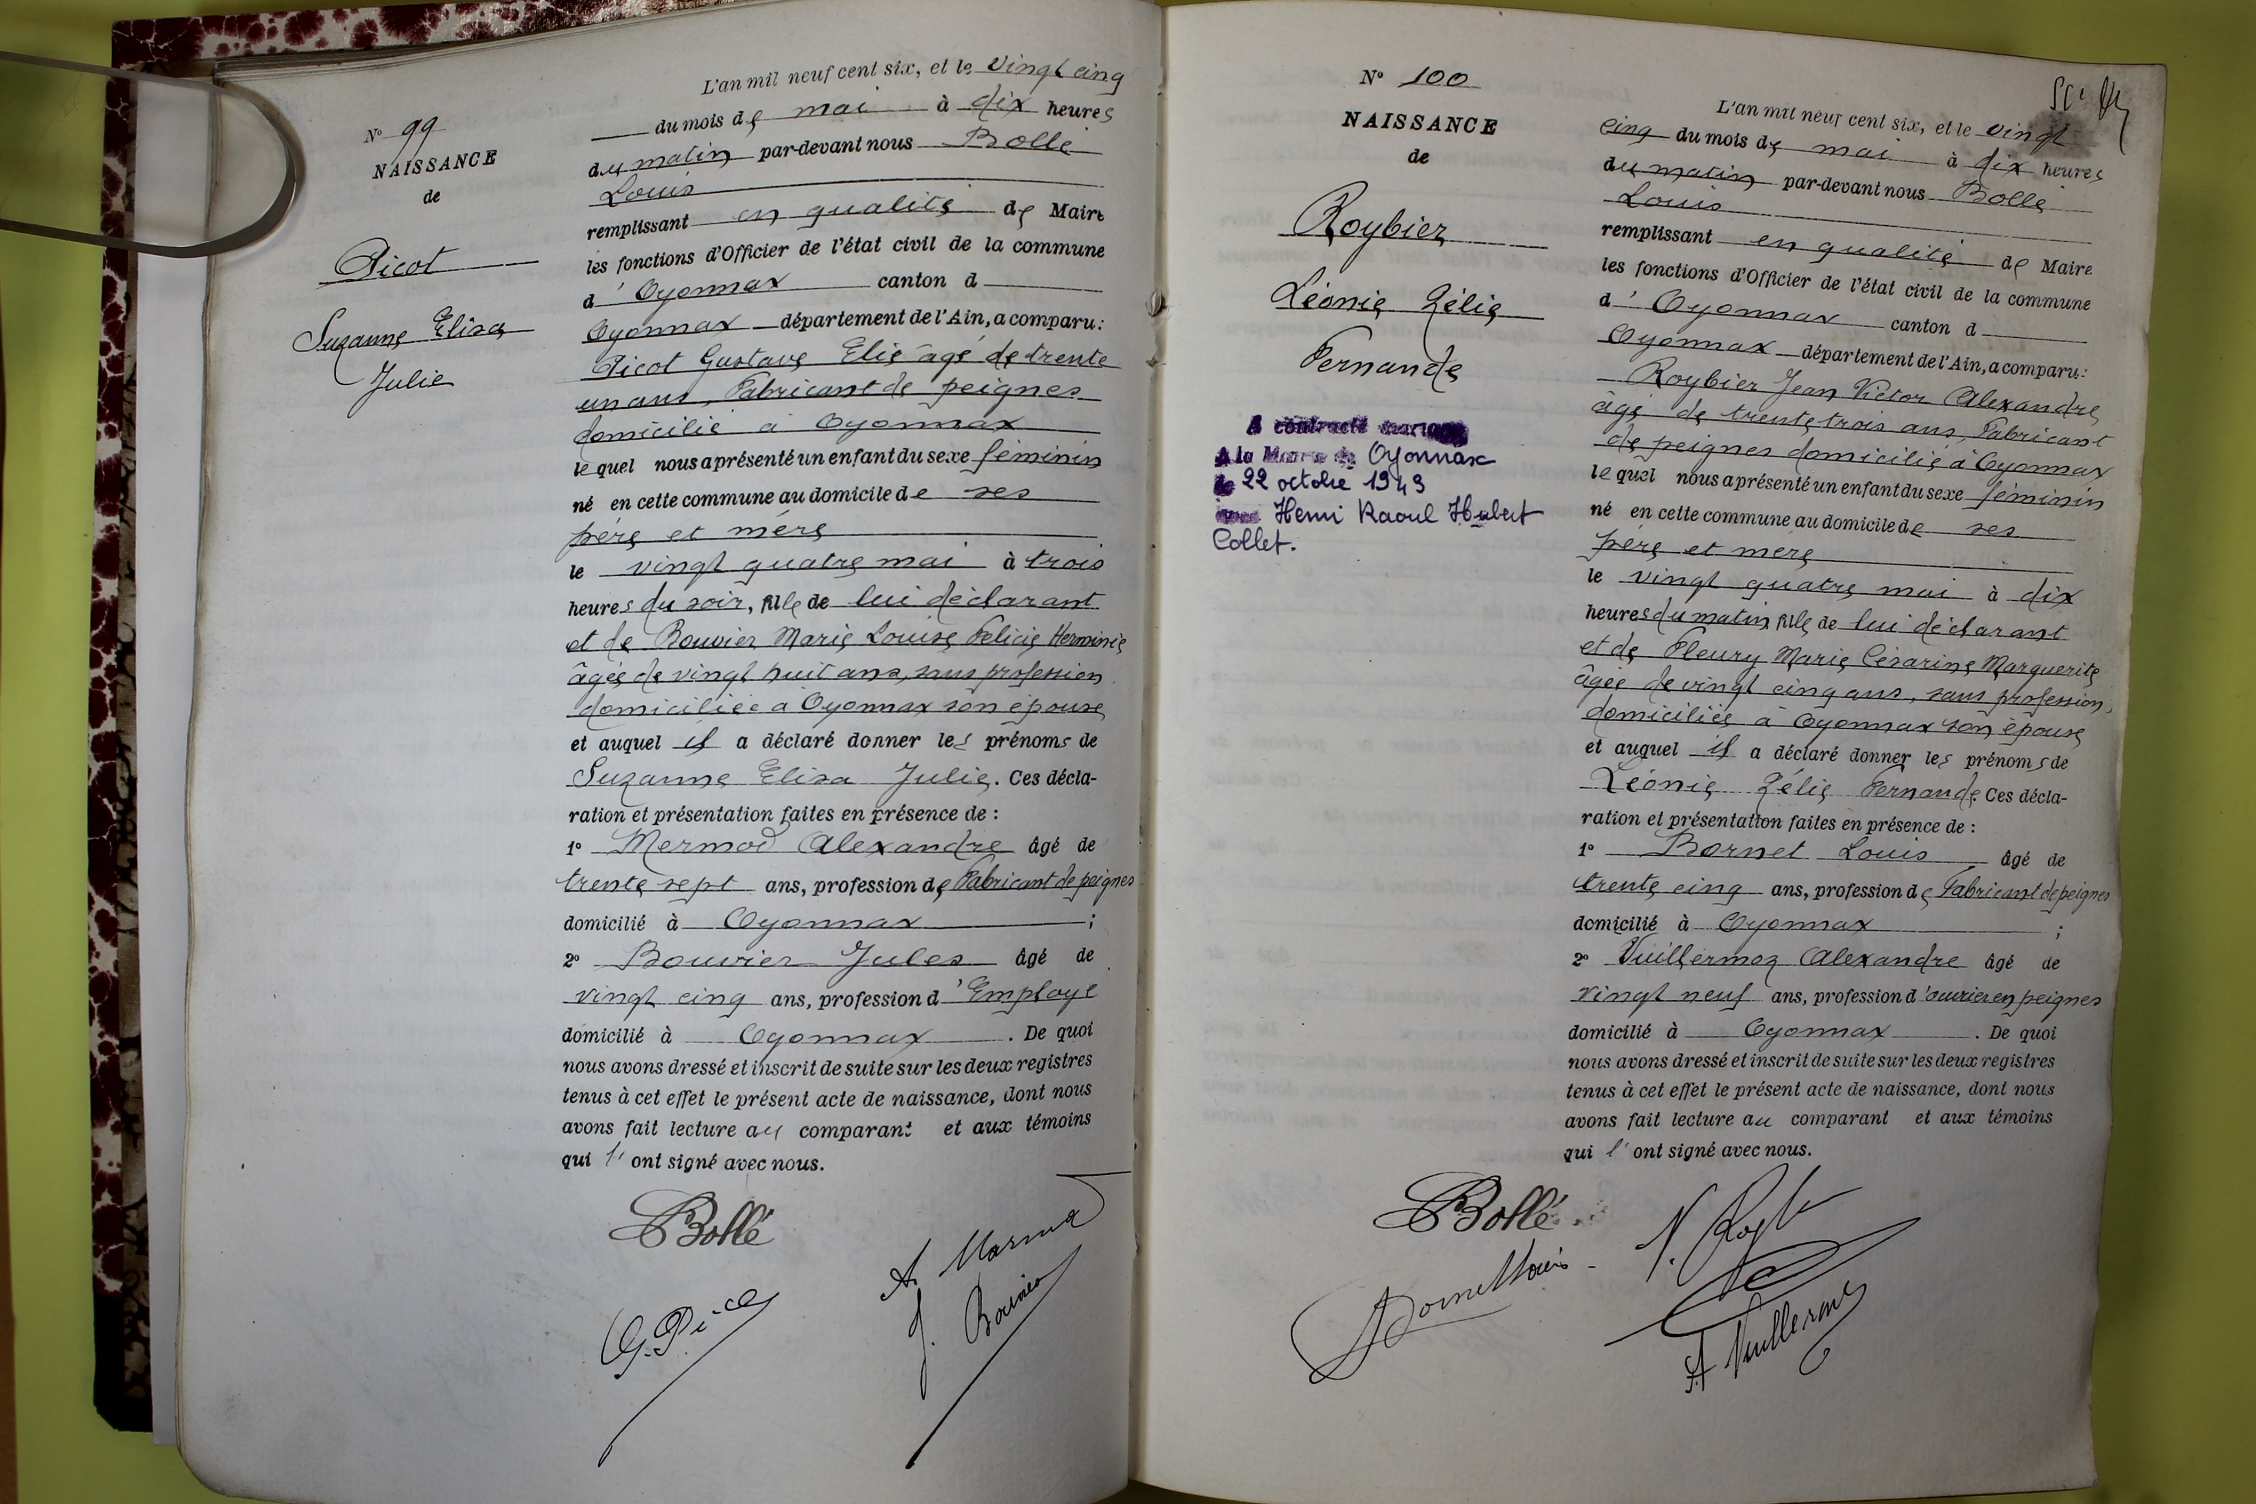 L'an mil neuf cent six, et le vingt cinq
N° 99
NAISSANCE
de
Picot
Suzanne Elisa
Julie
du mois de mai à dix heures
du matin par-devant nous Bollé
Louis
remplissant en qualité de Maire
les fonctions d'Officier de l'état civil de la commune
d' Oyonnax canton d
Oyonnax département de l'Ain, a comparu:
Picot Gustave Elie âgé de trente
un ans, Fabricant de peignes
domicilié à Oyonnax
lequel nous a présenté un enfant du sexe féminin
né en cette commune au domicile de ses
père et mère
le vingt quatre mai à trois
heures du soir, fille de lui déclarant
et de Bouvier Marie Louise Felicie Herminie
âgée de vingt huit ans, sans profession
domiciliée à Oyonnax son épouse
et auquel il a déclaré donner les prénoms de
Suzanne Elisa Julie. Ces décla-
ration et présentation faites en présence de :
1° Mermod Alexandre âgé de
trente sept ans, profession de Fabricant de peignes
domicilié à Oyonnax ;
2° Bouvier Jules âgé de
vingt cinq ans, profession d'Employé
domicilié à Oyonnax . De quoi
nous avons dressé et inscrit de suite sur les deux registres
tenus à cet effet le présent acte de naissance, dont nous
avons fait lecture au comparant et aux témoins
qui l' ont signé avec nous.
Bollé
G. Picot
J. Bouvier
N° 100
NAISSANCE
de
Roybier
Léonie Zélie
Fernande
A contracté mariage
A la Mairie de Oyonnax
le 22 octobre 1943
avec Henri Raoul Hubert
Collet.
L'an mil neuf cent six, et le vingt
cinq du mois de mai à dix heures
du matin par-devant nous Bollé
Louis
remplissant en qualité de Maire
les fonctions d'Officier de l'état civil de la commune
d' Oyonnax canton d
Oyonnax département de l'Ain, a comparu:
Roybier Jean Victor Alexandre
âgé de trente trois ans, Fabricant
de peignes domicilié à Oyonnax
lequel nous a présenté un enfant du sexe féminin
né en cette commune au domicile de ses
père et mère
le vingt quatre mai à dix
heures du matin fille de lui déclarant
et de Fleury Marie Césarine Marguerite
âgée de vingt cinq ans, sans profession,
domiciliée à Oyonnax son épouse
et auquel il a déclaré donner les prénoms de
Léonie Zélie Fernande. Ces décla-
ration et présentation faites en présence de :
1° Bornet Louis âgé de
trente cinq ans, profession de Fabricant de peignes
domicilié à Oyonnax ;
2° Vuillermoz Alexandre âgé de
vingt neuf ans, profession d'ouvrier en peignes
domicilié à Oyonnax . De quoi
nous avons dressé et inscrit de suite sur les deux registres
tenus à cet effet le présent acte de naissance, dont nous
avons fait lecture au comparant et aux témoins
qui l' ont signé avec nous.
Bollé
Bornet Louis